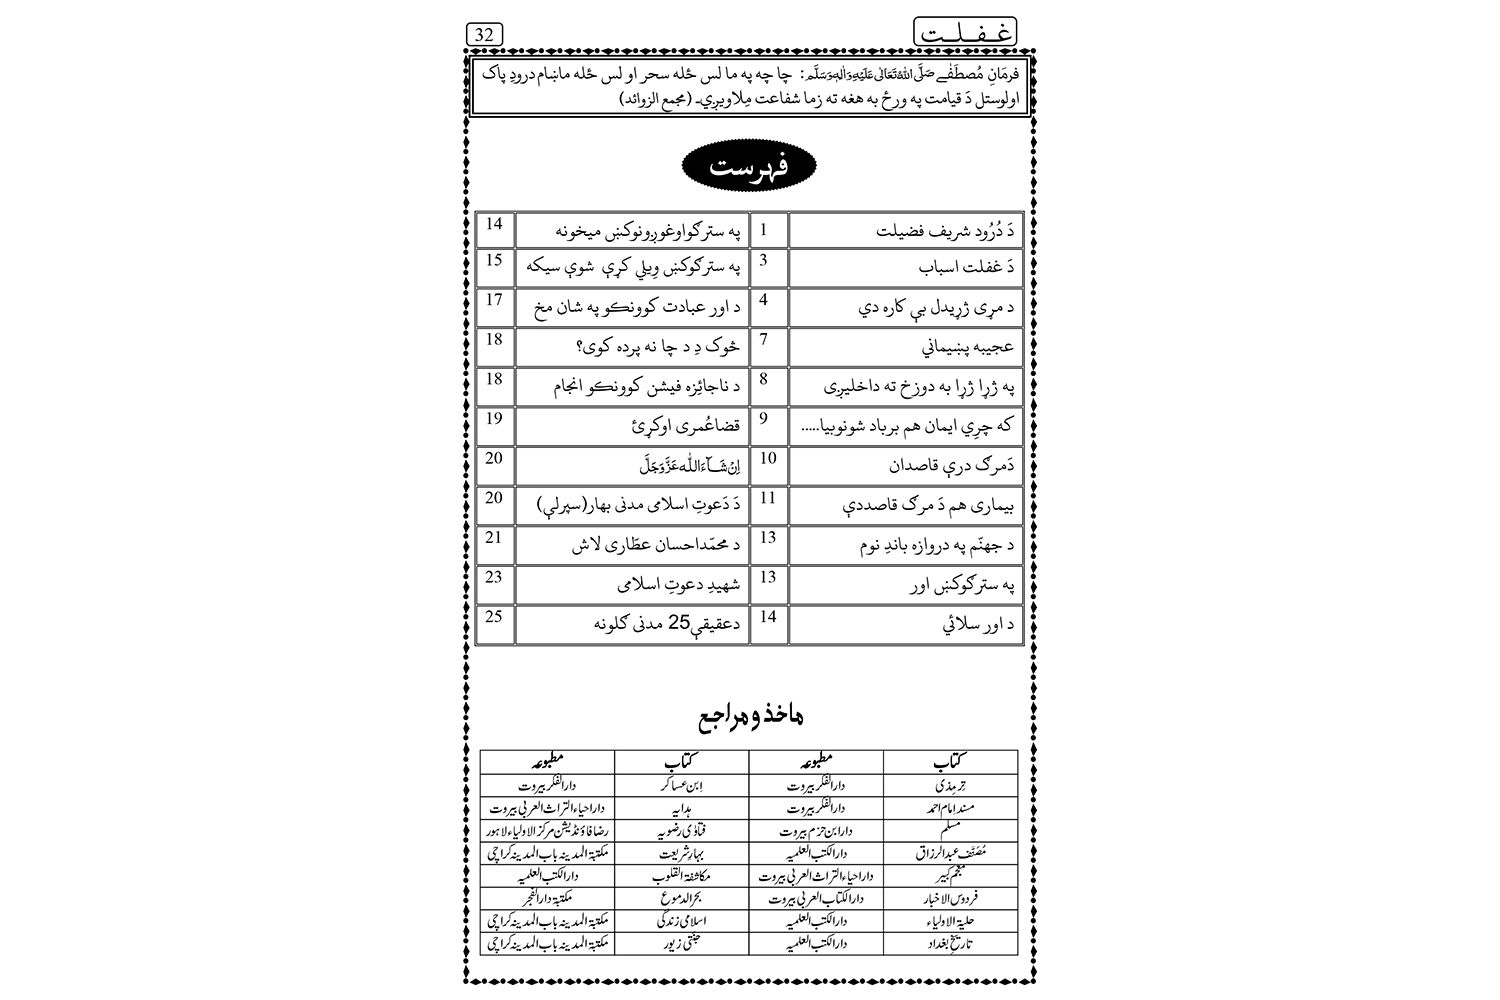 غفلت
32
فرمَانِ مُصطَفٰے صَلَّی اللہُ تَعَالٰی عَلَیْہِ وَاٰلِہٖ وَسَلَّم: چا چه په ما لس ځله سحر او لس ځله ماښام درودِ پاک
اولوستل دَ قیامت په ورځ به هغه ته زما شفاعت مِلاویږي۔ (مجمع الزوائد)
فہرست
دَ دُرُود شریف فضیلت 1 په سترګواوغوږونوکښ میخونه 14
دَ غفلت اسباب 3 په سترګوکښ وِیلي کړې شوې سیکه 15
د مړی ژړیدل بې کاره دي 4 د اور عبادت کوونکو په شان مخ 17
عجیبه پښیماني 7 څوک دِ د چا نه پرده کوی؟ 18
په ژړا ژړا به دوزخ ته داخلیږی 8 د ناجائِزه فیشن کوونکو انجام 18
که چرې ایمان هم برباد شونوبیا..... 9 قضاعُمری اوکړئ 19
دَمرګ درې قاصدان 10 اِنْ شَآءَ اللّٰہ عَزَّوَجَلَّ 20
بیماری هم دَ مرګ قاصددې 11 دَ دَعوتِ اسلامی مدنی بهار(سپرلې) 20
د جهنّم په دروازه باندِ نوم 13 د محمّداحسان عطّاری لاش 21
په سترګوکښ اور 13 شهیدِ دعوتِ اسلامی 23
د اور سلائي 14 دعقیقې25 مدنی ګلونه 25
ماخذ و مراجع
کتاب مطبوعہ کتاب مطبوعہ
ترمذی دارالفکر بیروت اِبن عساکر دارالفکر بیروت
مسند امام احمد دارالفکر بیروت ہدایہ داراحیاء التراث العربی بیروت
مسلم دارابن حزم بیروت فتاوٰی رضویہ رضا فاؤنڈیشن مرکز الاولیاء لاہور
مُصَنَّف عبدالرزاق دارالکتب العلمیہ بہارِ شریعت مکتبۃ المدینہ باب المدینہ کراچی
معجم کبیر داراحیاء التراث العربی بیروت مکاشفۃ القلوب دارالکتب العلمیہ
فردوس الاخبار دارالکتاب العربی بیروت بحرالدموع مکتبۃ دارالفجر
حلیۃ الاولیاء دارالکتب العلمیہ اسلامی زندگی مکتبۃ المدینہ باب المدینہ کراچی
تاریخِ بغداد دارالکتب العلمیہ جنتی زیور مکتبۃ المدینہ باب المدینہ کراچی